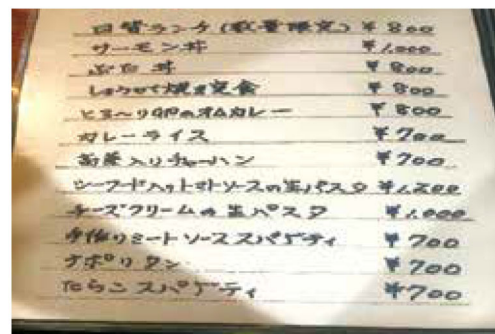 日替ランチ(数量限定) ¥800
サーモン丼 ¥1,000
ぶた丼 ¥800
しょうが焼き定食 ¥800
とろ〜り卵のオムカレー ¥800
カレーライス ¥700
高菜入りチャーハン ¥700
シーフード入りトマトソースの生パスタ ¥1,200
チーズクリームの生パスタ ¥1,000
手作りミートソーススパゲティ ¥700
ナポリタン ¥700
たらこスパゲティ ¥700